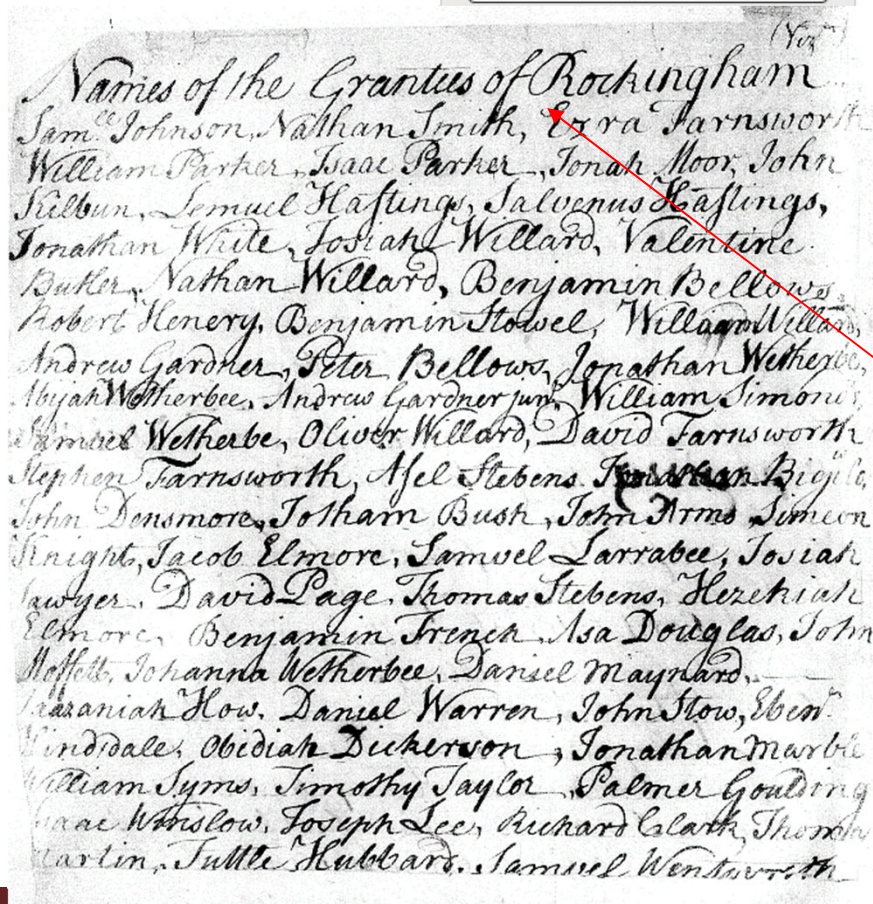 (Viz
Names of the Grantees of Rockingham
Samll Johnson, Nathan Smith, Ezra Farnsworth
William Parker, Isaac Parker, Jonah Moor, John
Kilbun, Lemuel Hastings, Salvenus Hastings,
Jonathan White, Josiah Willard, Valentine
Butler, Nathan Willard, Benjamin Bellows,
Robert Henery, Benjamin Stowel, William Willard,
Andrew Gardner, Peter Bellows, Jonathan Wetherbe,
Abijah Wetherbee, Andrew Gardner junr, William Simonds,
Samuel Wetherbe, Oliver Willard, David Farnsworth
Stephen Farnsworth, Asel Stebens Bigelo,
John Densmore, Jotham Bush, John Arms, Simeon
Knight, Jacob Elmore, Samuel Larrabee, Josiah
Sawyer, David Page, Thomas Stebens, Hezekiah
Elmore, Benjamin French, Asa Douglas, John
Moffett, Johanna Wetherbee, Daniel Maynard,
Jaazaniah How, Daniel Warren, John Stow, Ebenr
Hindsdale, Obidiah Dickerson, Jonathan Marble
William Syms, Timothy Taylor, Palmer Goulding
Isaac Winslow, Joseph Lee, Richard Clark, Thomas
Martin, Tuttle Hubbard, Samuel Wentworth